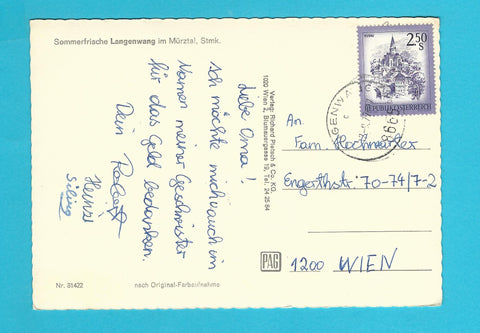 Sommerfrische Langenwang im Mürztal, Stmk.
Liebe Oma!
Ich möchte mich auch im
Namen meiner Geschwister
für das Geld bedanken.
Dein Robert
Heinzi
Verlag: Richard Pietsch & Co. KG.
1020 Wien 2, Blumauergasse 19, Tel. 24 25 84
2.50
S
REPUBLIK ÖSTERREICH
8665
An
Fam. Hochmeister
Engerthstr. 70-74/7-2
1200 WIEN
PAG
Nr. 31422
nach Original-Farbaufnahme